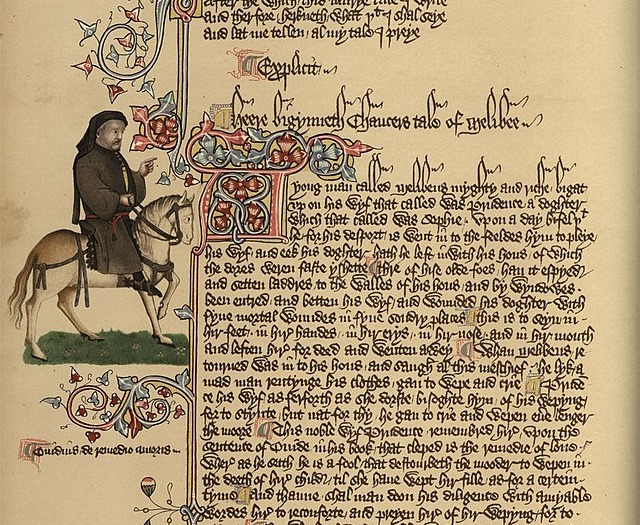 after the which this murye tale I wryte
and therfore herkneth what yt I shal seye
and lat me tellen al my tale I preye
Explicit
Heere bigynneth Chaucers tale of Melibee
A yong man called Melibeus myghty and riche bigat
vp on his wyf that called was Prudence a doghter
which that called was Sophie / vpon a day bifel yt
he for his desport is went in to the feeldes hym to pleye
his wyf and eek his doghter hath he left in with his hous of which
the dores weren faste yshette / thre of hise olde foes han it espyed
and setten laddres to the walles of his hous and by wyndowes
been entred and betten his wyf and wounded his doghter with
fyue mortal woundes in fyue sondry places / this is to seyn in
hir feet / in hir handes / in hir erys / in hir nose / and in hir mouth
and leften hir for deed and wenten awey / Whan Melibeus re
tourned was in to his hous and saugh al this meschief he lyk a
mad man rentynge his clothes / gan to wepe and crie / Prude
ce his wyf as ferforth as she dorste bisoghte hym of his wepyng
for to stynte / but nat for thy he gan to crie and wepen euere lenger
the moore / This noble wyf Prudence remembred hir vpon the
sentence of Ouide in his book that cleped is the remedie of loue
wher as he seith he is a fool that destourbeth the mooder to wepen in
the deeth of hir child / til she haue wept hir fille as for a certein
tyme / and thanne shal man doon his diligence with amyable
wordes hir to reconforte and preyen hir of hir wepyng for to
Ouidius de remedio amoris